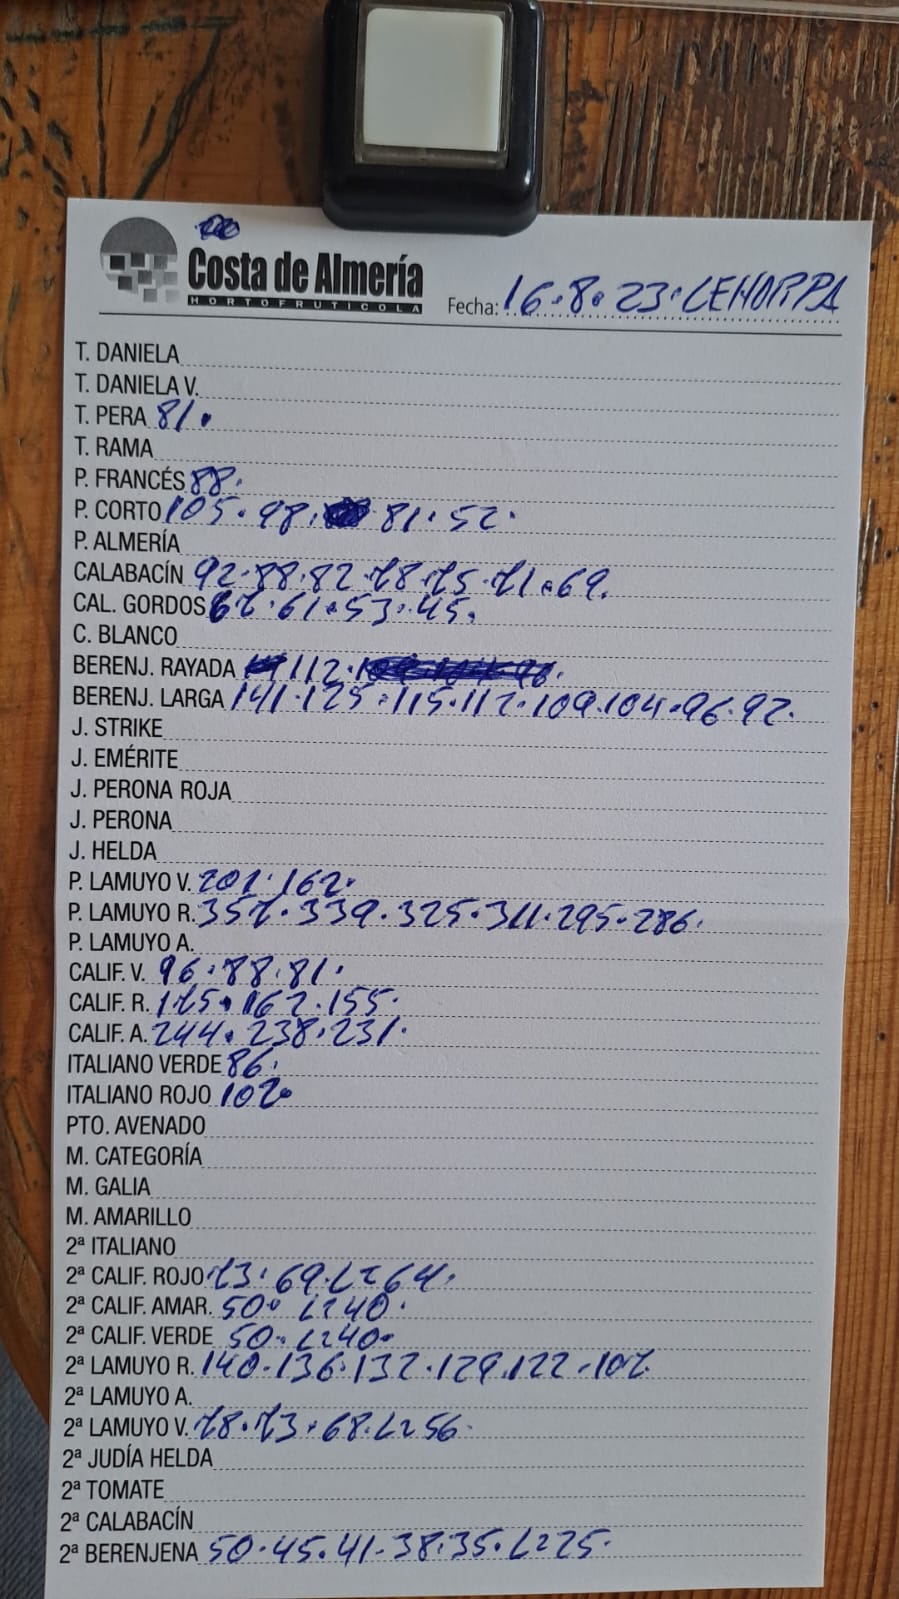 Costa de Almería
HORTOFRUTICOLA
Fecha: 16.8.23. LEHORPPA
T. DANIELA
T. DANIELA V.
T. PERA 81.
T. RAMA
P. FRANCÉS 88.
P. CORTO 105. 98. 81. 52.
P. ALMERÍA
CALABACÍN 92. 88. 82. 78. 75. 71. 69.
CAL. GORDOS 67. 61. 53. 45.
C. BLANCO
BERENJ. RAYADA 112.
BERENJ. LARGA 141. 125. 115. 112. 109. 104. 96. 92.
J. STRIKE
J. EMÉRITE
J. PERONA ROJA
J. PERONA
J. HELDA
P. LAMUYO V. 201. 162.
P. LAMUYO R. 357. 339. 325. 311. 295. 286.
P. LAMUYO A.
CALIF. V. 96. 88. 81.
CALIF. R. 175. 162. 155.
CALIF. A. 244. 238. 231.
ITALIANO VERDE 86.
ITALIANO ROJO 107.
PTO. AVENADO
M. CATEGORÍA
M. GALIA
M. AMARILLO
2ª ITALIANO
2ª CALIF. ROJO 73. 69. L= 64.
2ª CALIF. AMAR. 50. L= 40.
2ª CALIF. VERDE 50. L= 40.
2ª LAMUYO R. 140. 136. 132. 129. 122. 107.
2ª LAMUYO A.
2ª LAMUYO V. 78. 73. 68. L= 56.
2ª JUDÍA HELDA
2ª TOMATE
2ª CALABACÍN
2ª BERENJENA 50. 45. 41. 38. 35. L= 25.